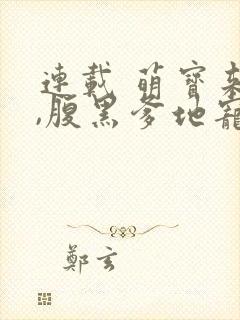 連載 萌寶
,腹黑爹地寵
鄭玄